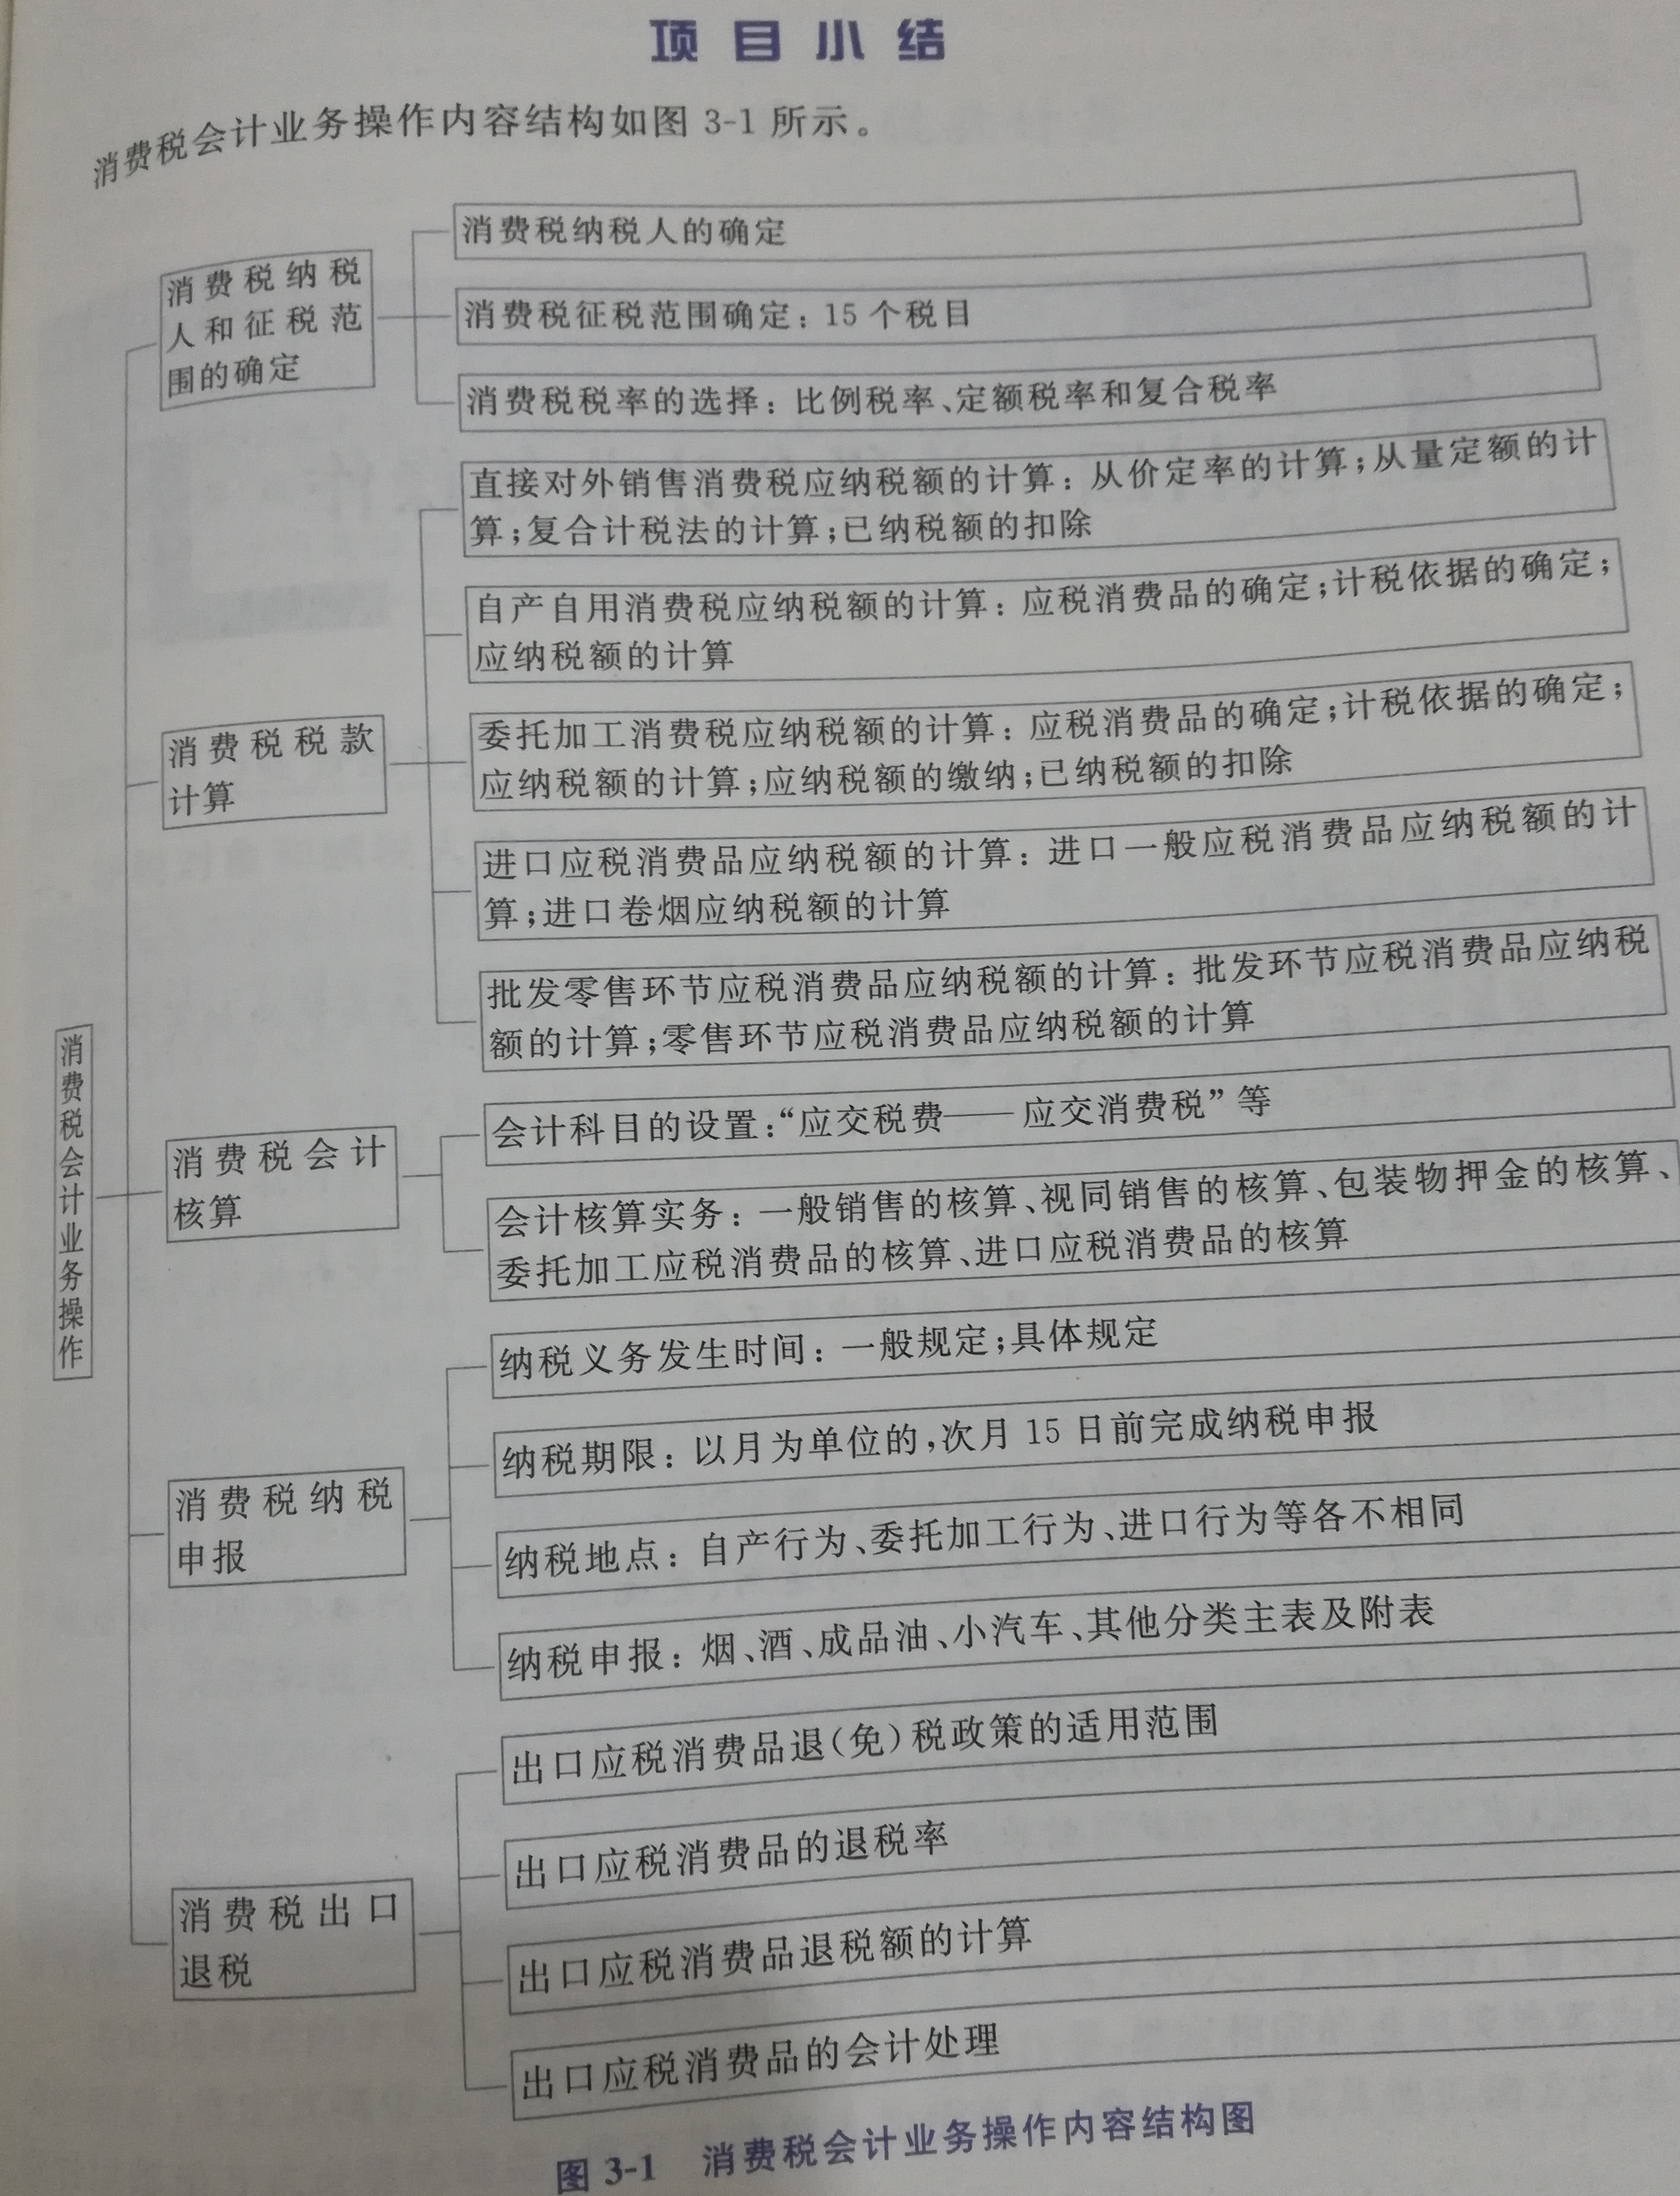 项目小结
消费税会计业务操作内容结构如图 3-1 所示。
消费税会计业务操作
消费税纳税
人和征税范
围的确定
消费税纳税人的确定
消费税征税范围确定：15 个税目
消费税税率的选择：比例税率、定额税率和复合税率
消费税税款
计算
直接对外销售消费税应纳税额的计算：从价定率的计算；从量定额的计
算；复合计税法的计算；已纳税额的扣除
自产自用消费税应纳税额的计算：应税消费品的确定；计税依据的确定；
应纳税额的计算
委托加工消费税应纳税额的计算：应税消费品的确定；计税依据的确定；
应纳税额的计算；应纳税额的缴纳；已纳税额的扣除
进口应税消费品应纳税额的计算：进口一般应税消费品应纳税额的计
算；进口卷烟应纳税额的计算
批发零售环节应税消费品应纳税额的计算：批发环节应税消费品应纳税
额的计算；零售环节应税消费品应纳税额的计算
消费税会计
核算
会计科目的设置：“应交税费——应交消费税”等
会计核算实务：一般销售的核算、视同销售的核算、包装物押金的核算、
委托加工应税消费品的核算、进口应税消费品的核算
消费税纳税
申报
纳税义务发生时间：一般规定；具体规定
纳税期限：以月为单位的，次月 15 日前完成纳税申报
纳税地点：自产行为、委托加工行为、进口行为等各不相同
纳税申报：烟、酒、成品油、小汽车、其他分类主表及附表
消费税出口
退税
出口应税消费品退（免）税政策的适用范围
出口应税消费品的退税率
出口应税消费品退税额的计算
出口应税消费品的会计处理
图 3-1 消费税会计业务操作内容结构图